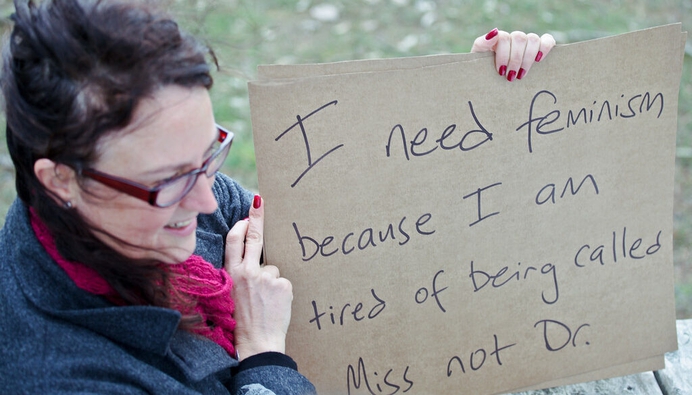 I need feminism
because I am
tired of being called
Miss not Dr.